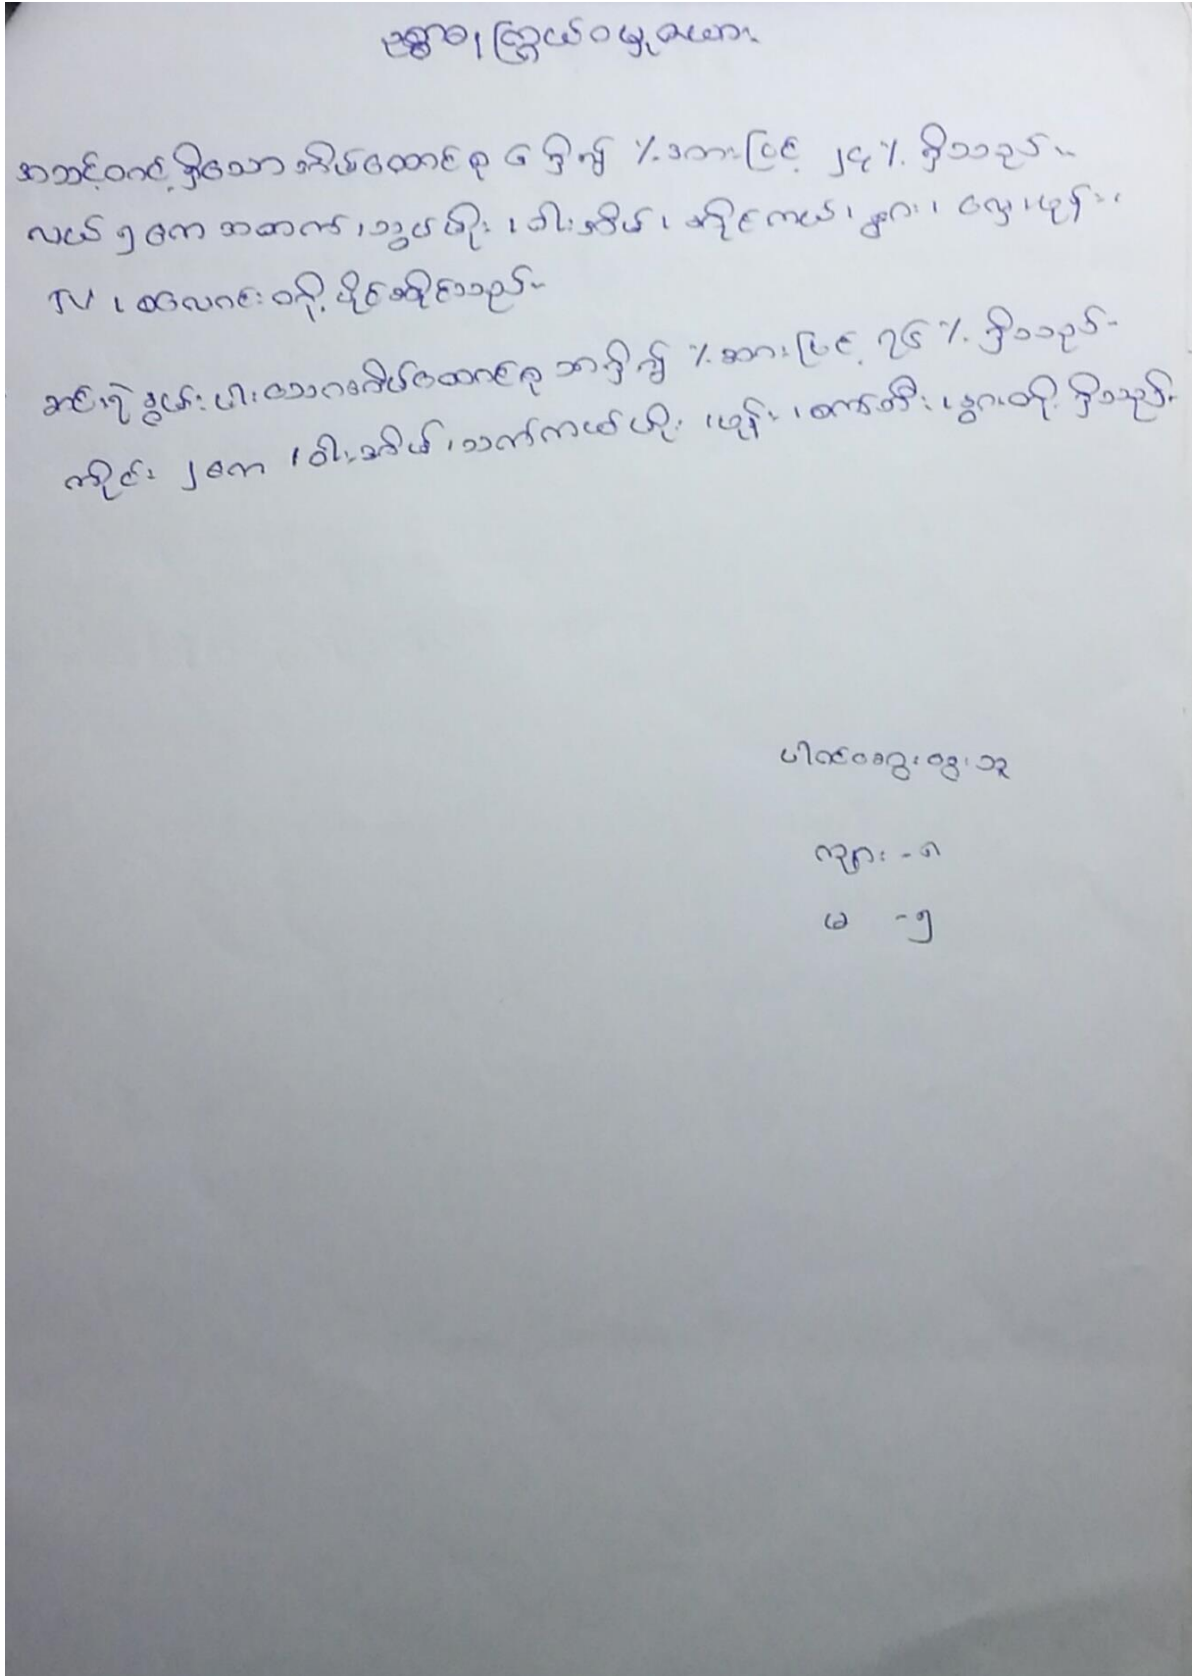 ဥစ္စာဓန ကြွယ်ဝမှုဇယား
အသင့်တင့်ရှိသော အိမ်ထောင်စု ၆ ရှိ၍ %အားဖြင့် ၂၄% ရှိသည်။
လယ် ၅ ဧက အထက်၊ သွပ်မိုး၊ ဝါးအိမ်၊ ဆိုင်ကယ်၊ နွား၊ လှေ၊ ဖုန်း၊
TV ၊ စလောင်းတို့ ပိုင်ဆိုင်သည်။
ဆင်းရဲနွမ်းပါးသောအိမ်ထောင်စု ၁၈ ရှိ၍ %အားဖြင့် ၇၆% ရှိသည်။
ကိုင်း ၂ ဧက ၊ ဝါးအိမ်၊ သက်ကယ်မိုး ၊ ဖုန်း ၊ စက်ဘီး ၊ နွားတို့ ရှိသည်။
ပါဝင်ဆွေးနွေးသူ
ကျား - ၈
မ - ၅